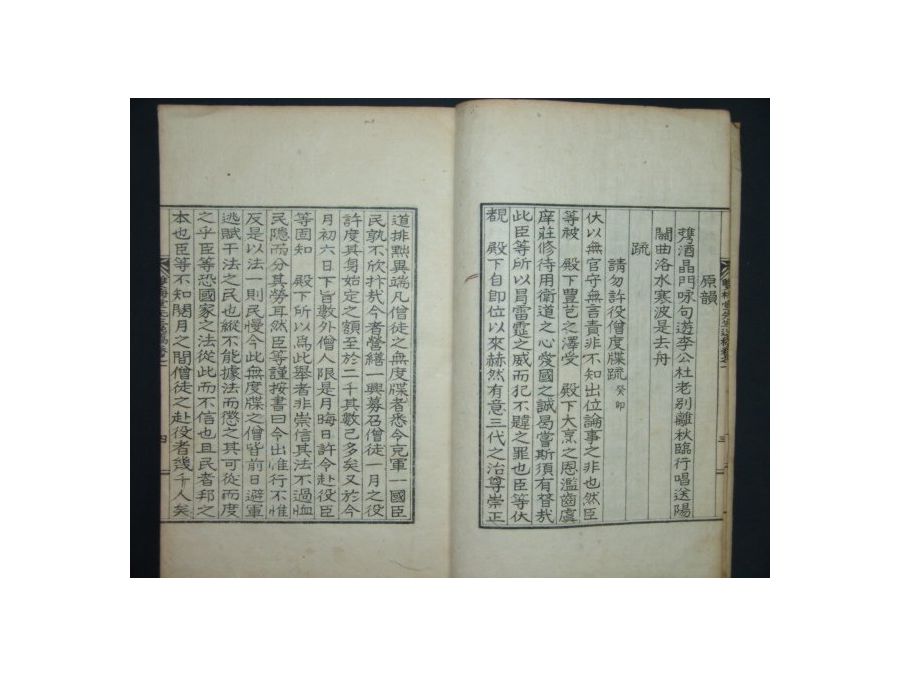 原韻
携酒晶門咏句遊李公杜老別離秋臨行唱送陽
關曲洛水寒波是去舟
疏
請勿許役僧度牒疏 癸卯
伏以無官守無言責非不知出位論事之非也然臣
等被 殿下豐芑之澤受 殿下大烹之恩濫齒虞
庠莊修待用衛道之心愛國之誠曷嘗斯須有替哉
此臣等所以冒雷霆之威而犯不韙之罪也臣等伏
覩 殿下自即位以來赫然有意三代之治尊崇正
道排黜異端凡僧徒之無度牒者悉令充軍一國臣
民孰不欣抃哉今者營繕一興募召僧徒一月之役
許度其身始定之額至於二千其數已多矣又於今
月初六日下旨數外僧人限是月晦日許令赴役臣
等固知 殿下所以爲此擧者非崇信其法不過恤
民隱而分其勞耳然臣等謹按書曰令出惟行不惟
反是以法一則民慢今此無度牒之僧皆前日避軍
逃賦干法之民也縱不能據法而徵之其可從而度
之乎臣等恐國家之法從此而不信也且民者邦之
本也臣等不知閱月之間僧徒之赴役者幾千人矣
四